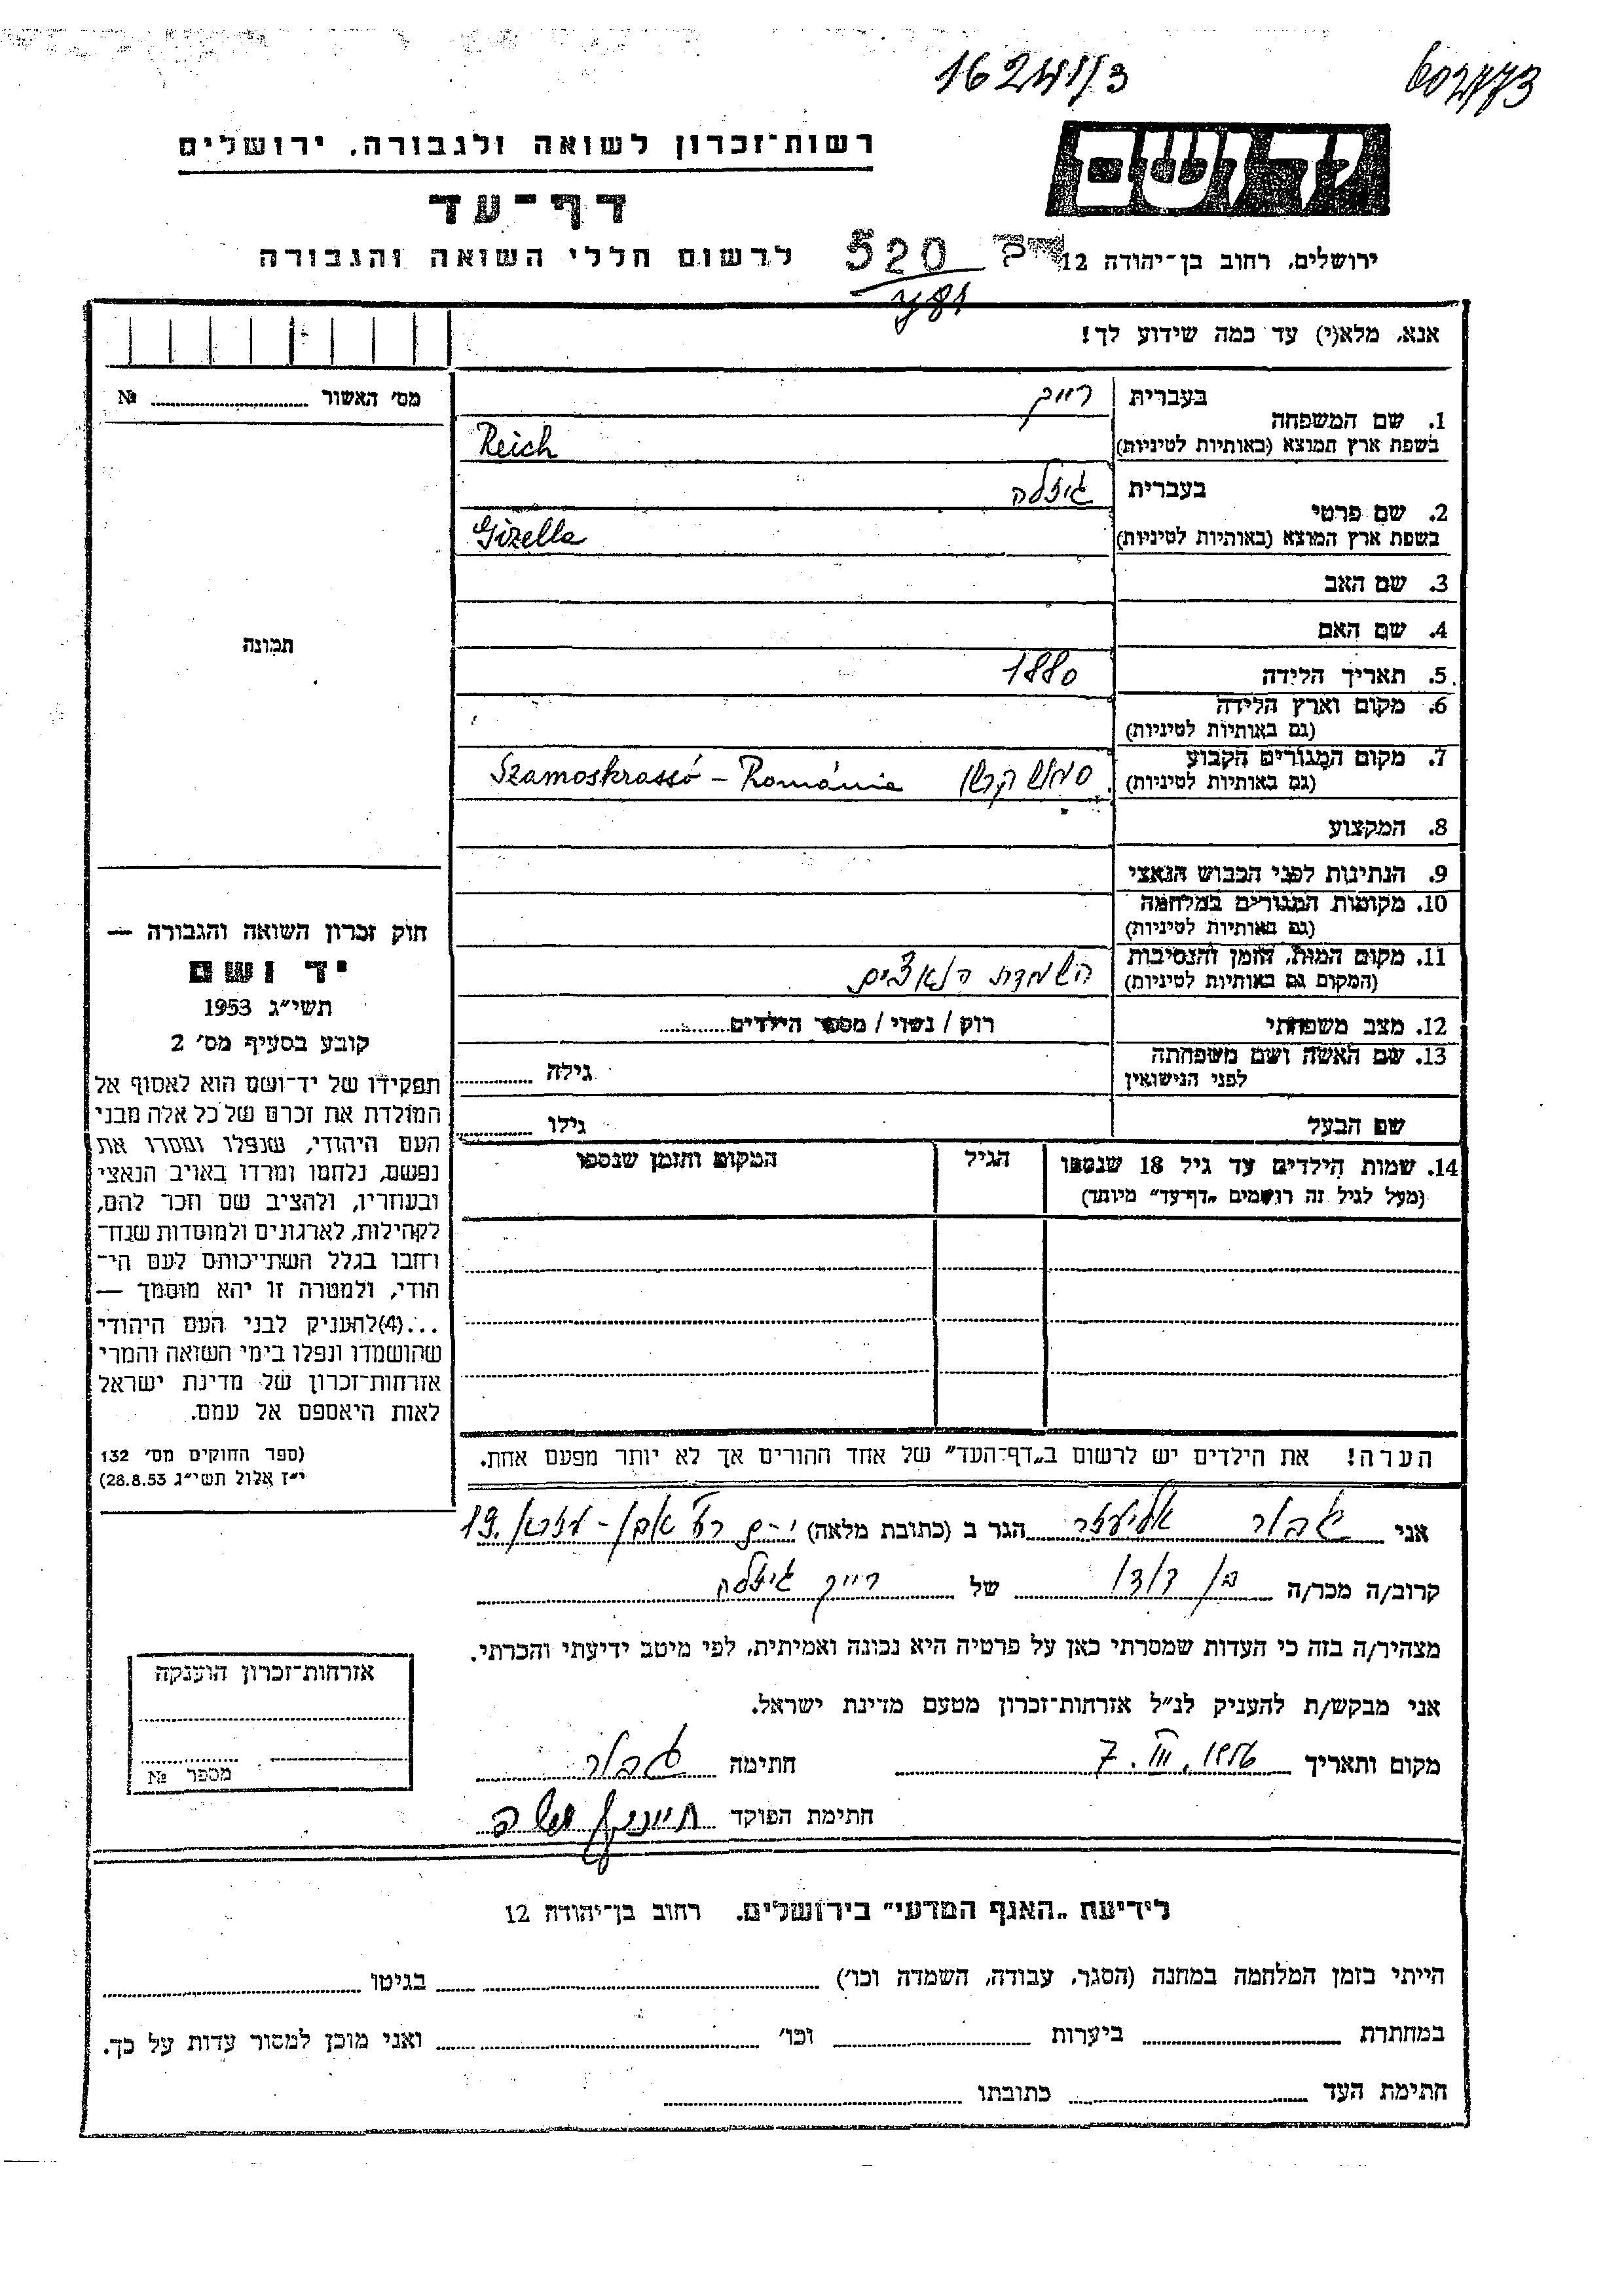 602473
רשות־זכרון לשואה ולגבורה, ירושלים
יד ושם
דף־עד
לרשום חללי השואה והגבורה
520
ירושלים, רחוב בן־יהודה 12
אנא, מלא(י) עד כמה שידוע לך!
מס' האשור № ........
בעברית רייך
1. שם המשפחה
בשפת ארץ המוצא (באותיות לטיניות) Reich
בעברית גיזלה
2. שם פרטי
בשפת ארץ המוצא (באותיות לטיניות) Gizella
3. שם האב
4. שם האם
תמונה
5. תאריך הלידה 1880
6. מקום וארץ הלידה
(גם באותיות לטיניות)
7. מקום המגורים הקבוע
(גם באותיות לטיניות) סמוש קרשו Szamoskrassó - Románia
8. המקצוע
9. הנתינות לפני הכבוש הנאצי
10. מקומות המגורים במלחמה
(גם באותיות לטיניות)
11. מקום המות, הזמן והנסיבות
(המקום גם באותיות לטיניות) השמדת הנאצים
12. מצב משפחתי רוק / נשוי / מספר הילדים........
13. שם האשה ושם משפחתה
לפני הנישואין גילה ........
שם הבעל גילו ........
14. שמות הילדים עד גיל 18 שנספו הגיל המקום והזמן שנספו
(מעל לגיל זה רושמים „דף־עד” מיוחד)
הערה! את הילדים יש לרשום ב„דף־העד” של אחד ההורים אך לא יותר מפעם אחת.
חוק זכרון השואה והגבורה —
יד ושם
תשי״ג 1953
קובע בסעיף מס' 2
תפקידו של יד־ושם הוא לאסוף אל
המולדת את זכרם של כל אלה מבני
העם היהודי, שנפלו ומסרו את
נפשם, נלחמו ומרדו באויב הנאצי
ובעוזריו, ולהציב שם וזכר להם,
לקהילות, לארגונים ולמוסדות שנח־
רחבו בגלל השתייכותם לעם הי־
הודי, ולמטרה זו יהא מוסמך —
...(4)להעניק לבני העם היהודי
שהושמדו ונפלו בימי השואה והמרי
אזרחות־זכרון של מדינת ישראל
לאות היאספם אל עמם.
(ספר החוקים מס' 132
י״ז אלול תשי״ג 28.8.53)
אני אליעזר הגר ב (כתובת מלאה) י-ם רח' אבן-עזרא 19.
קרוב/ה מכר/ה בן דודן של רייך גיזלה
מצהיר/ה בזה כי העדות שמסרתי כאן על פרטיה היא נכונה ואמיתית, לפי מיטב ידיעתי והכרתי.
אני מבקש/ת להעניק לנ״ל אזרחות־זכרון מטעם מדינת ישראל.
מקום ותאריך 7. III. 1956 חתימה
חתימת הפוקד
אזרחות־זכרון הוענקה
מספר №
לידיעת „האגף המדעי” בירושלים, רחוב בן־יהודה 12
הייתי בזמן המלחמה במחנה (הסגר, עבודה, השמדה וכו') ........ בגיטו ........
במחתרת ........ ביערות ........ וכו' ........ ואני מוכן למסור עדות על כך.
חתימת העד ........ כתובתו ........